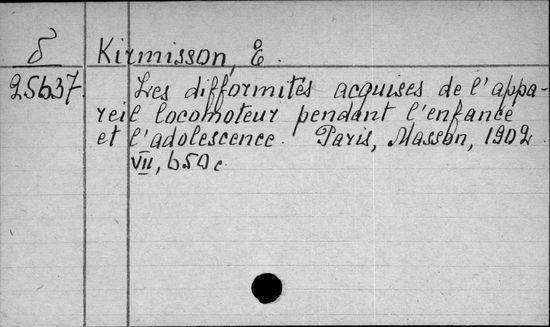 δ Kirmisson, E.
25637. Les difformités acquises de l'appa-
reil locomoteur pendant l'enfance
et l'adolescence. Paris, Masson, 1902.
VII, 650 c.